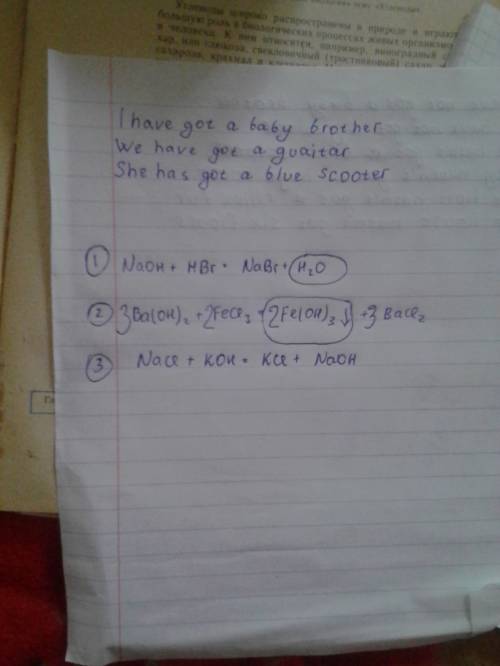 Углеводы широко распространены в природе и играют
большую роль в биологических процессах живых организмо
и человека. К ним относятся, например, виноградный с
хар, или глюкоза, свекловичный (тростниковый) сахар
сахароза, крахмал и
I have got a baby brother
We have got a guaitar
She has got a blue scooter
① NaOH + HBr = NaBr + H₂O
② 3Ba(OH)₂ + 2FeCl₃ = 2Fe(OH)₃↓ + 3BaCl₂
③ NaCl + KOH = KCl + NaOH